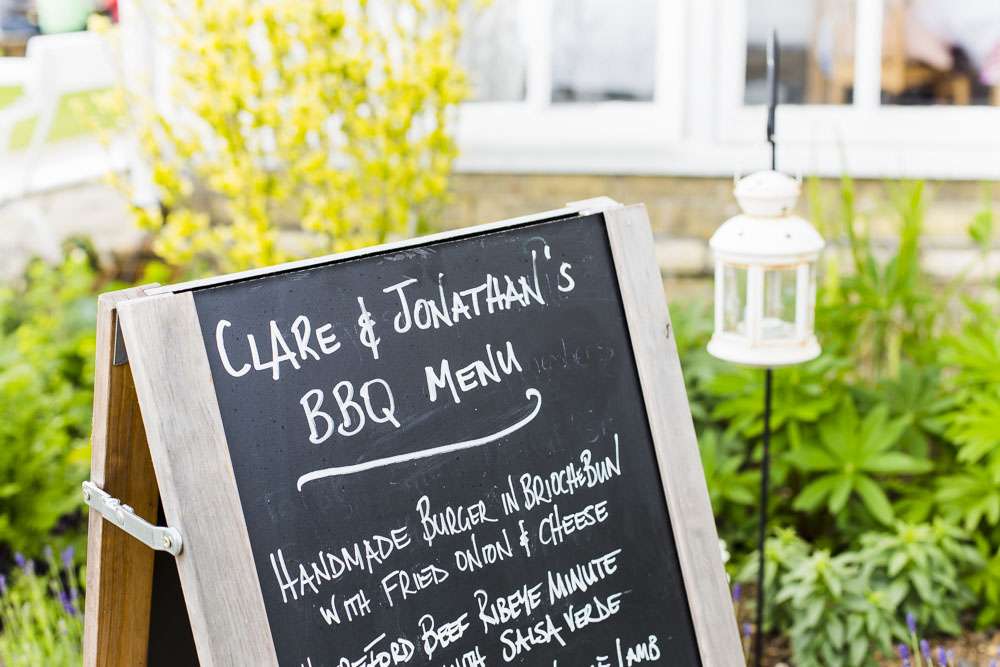 CLARE & JONATHAN'S
BBQ MENU
HANDMADE BURGER IN BRIOCHE BUN
WITH FRIED ONION & CHEESE
BEEF RIBEYE MINUTE
WITH SALSA VERDE
LAMB